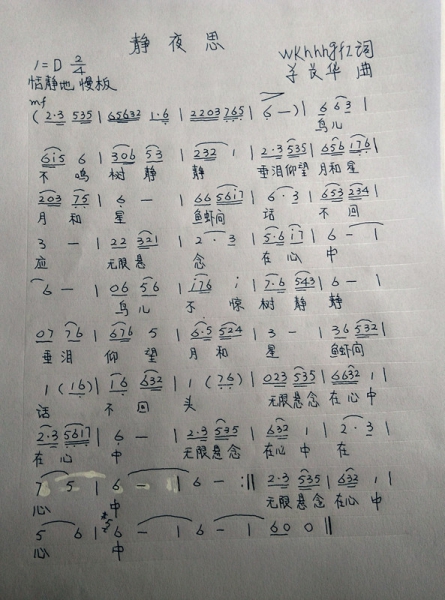 静夜思
1=D 2/4 wkhhh 词
恬静地 慢板 华 曲
mf
( 2·3 535 | 65632 1·6 | 2203 765 | 6 —) | 6 63 |
鸟儿
615 6 | 306 53 | 232 1 | 2·3 535 | 656 176 |
不 鸣 树 静 静 垂泪仰望 月和星
203 75 | 6 — | 66 5617 | 6·3 | 653 234 |
月 和 星 鱼虾问 话 不 回
3 — | 22 321 | 2·3 | 5·6 17 | 6 — |
应 无限悬 念 在心 中
6 — | 06 56 | 176 i | 7·6 543 | 6 — |
鸟儿 不 惊 树 静 静
07 76 | 676 5 | 6·5 524 | 3 — | 36 532 |
垂 泪 仰 望 月 和 星 鱼虾问
1 (16) | 16 632 | 1 (76) | 023 535 | 6632 1 |
话 不 回 头 无限悬念 在心 中
2·3 5617 | 6 — | 2·3 535 | 632 1 | 2·3 |
在 心 中 无限悬念 在心 中 在
7 5 | 6 — | 6 — :‖ 2·3 535 | 632 1 |
心 中 无限悬念 在心 中
5 6 | 6 — | 6 — | 60 0 ‖
心 中